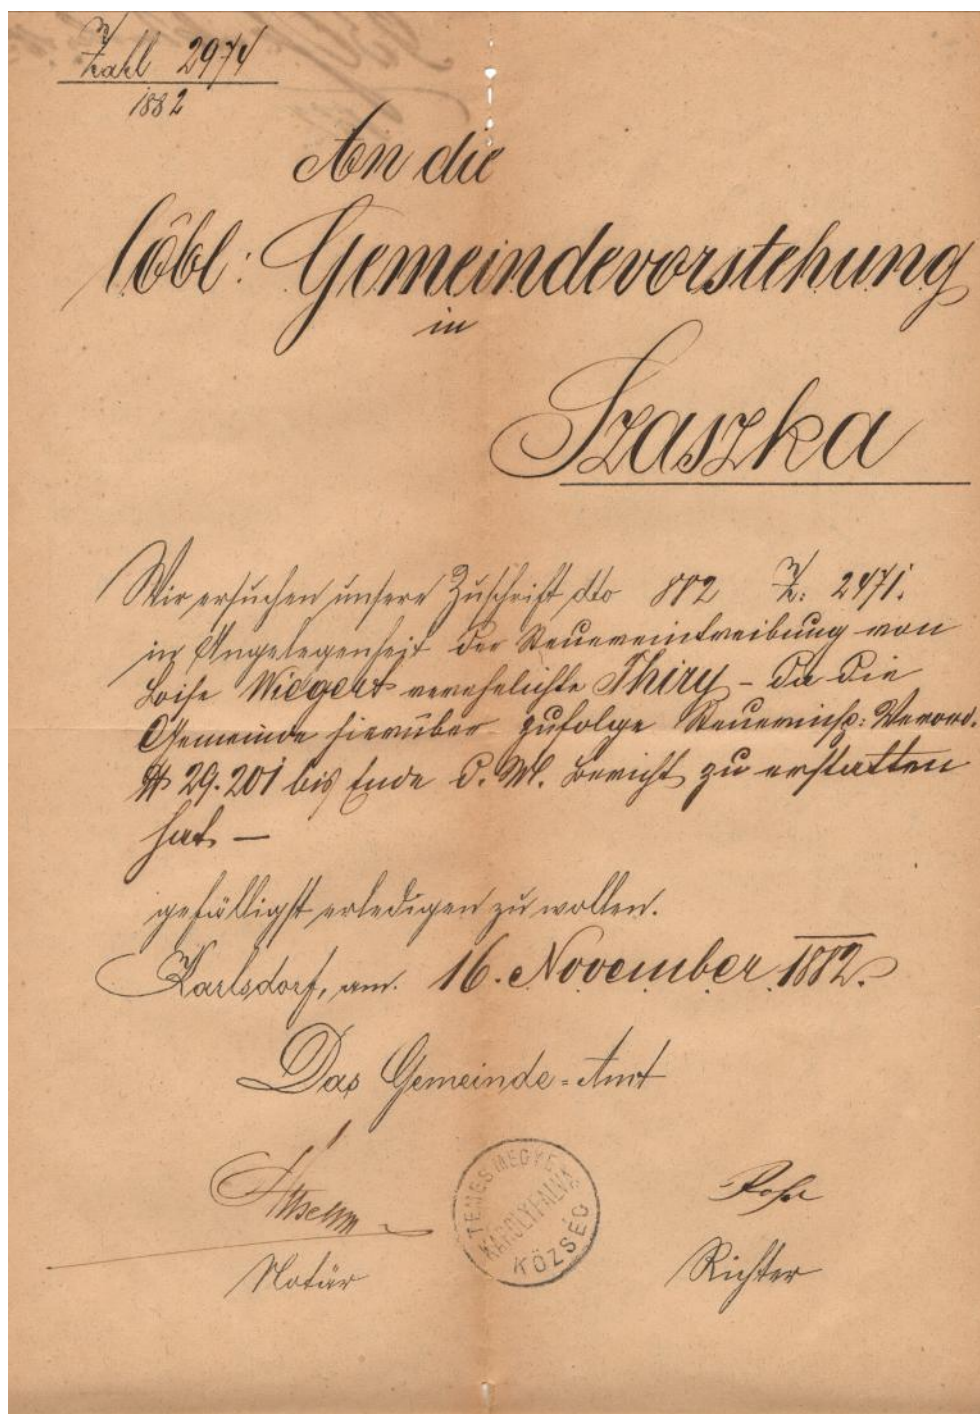 Zahl 2974
1882
An die
löbl: Gemeindevorstehung
in
Szaszka
Wir ersuchen unsere Zuschrift dto 882 Z: 2471.
in Angelegenheit der Steuereintreibung von
Loise Wiegert verehelichte Thiry – da die
Gemeinde hierüber zufolge Steuerinsp: Verord.
# 29.201 bis Ende d. M. Bericht zu erstatten
hat –
gefälligst erledigen zu wollen.
Karlsdorf, am 16. November 1882.
Das Gemeinde-Amt
TEMESMEGYE
KÁROLYFALVA
KÖZSÉG
Notär
Richter